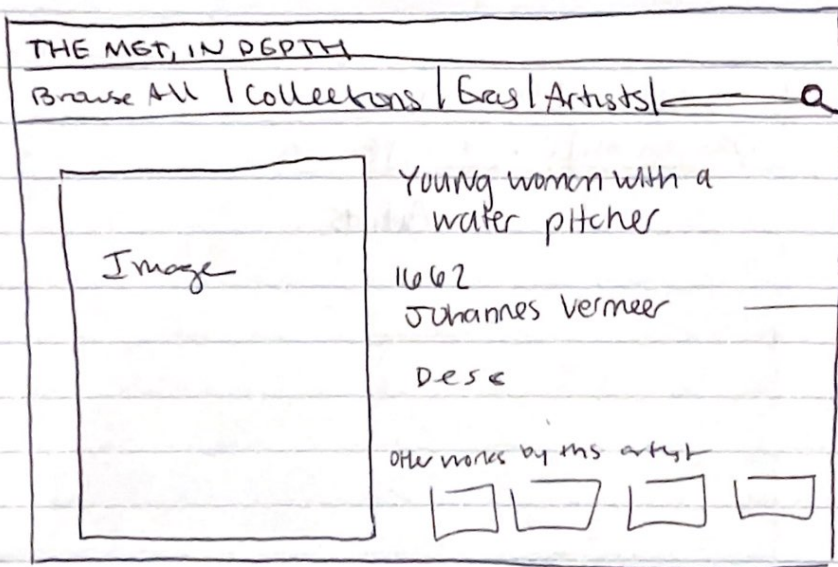 THE MET, IN DEPTH
Browse All | Collections | Eras | Artists |
Image
Young woman with a
water pitcher
1662
Johannes Vermeer
Desc
Other works by this artist